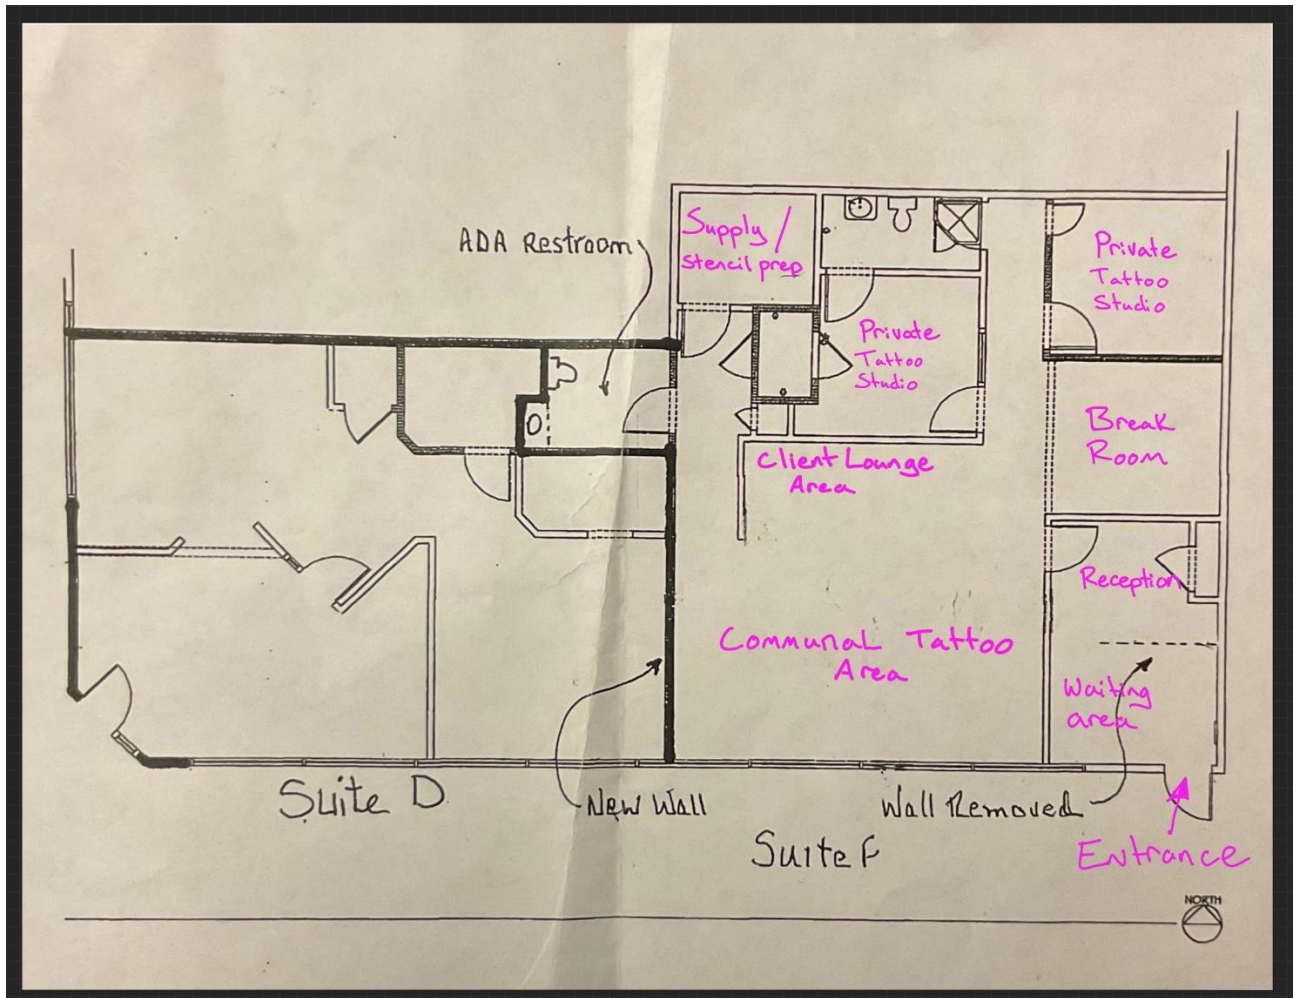 ADA Restroom
Supply /
Stencil prep
Private
Tattoo
Studio
Private
Tattoo
Studio
Break
Room
Client Lounge
Area
Reception
Communal Tattoo
Area
Waiting
area
Suite D
New Wall
Wall Removed
Suite F
Entrance
NORTH